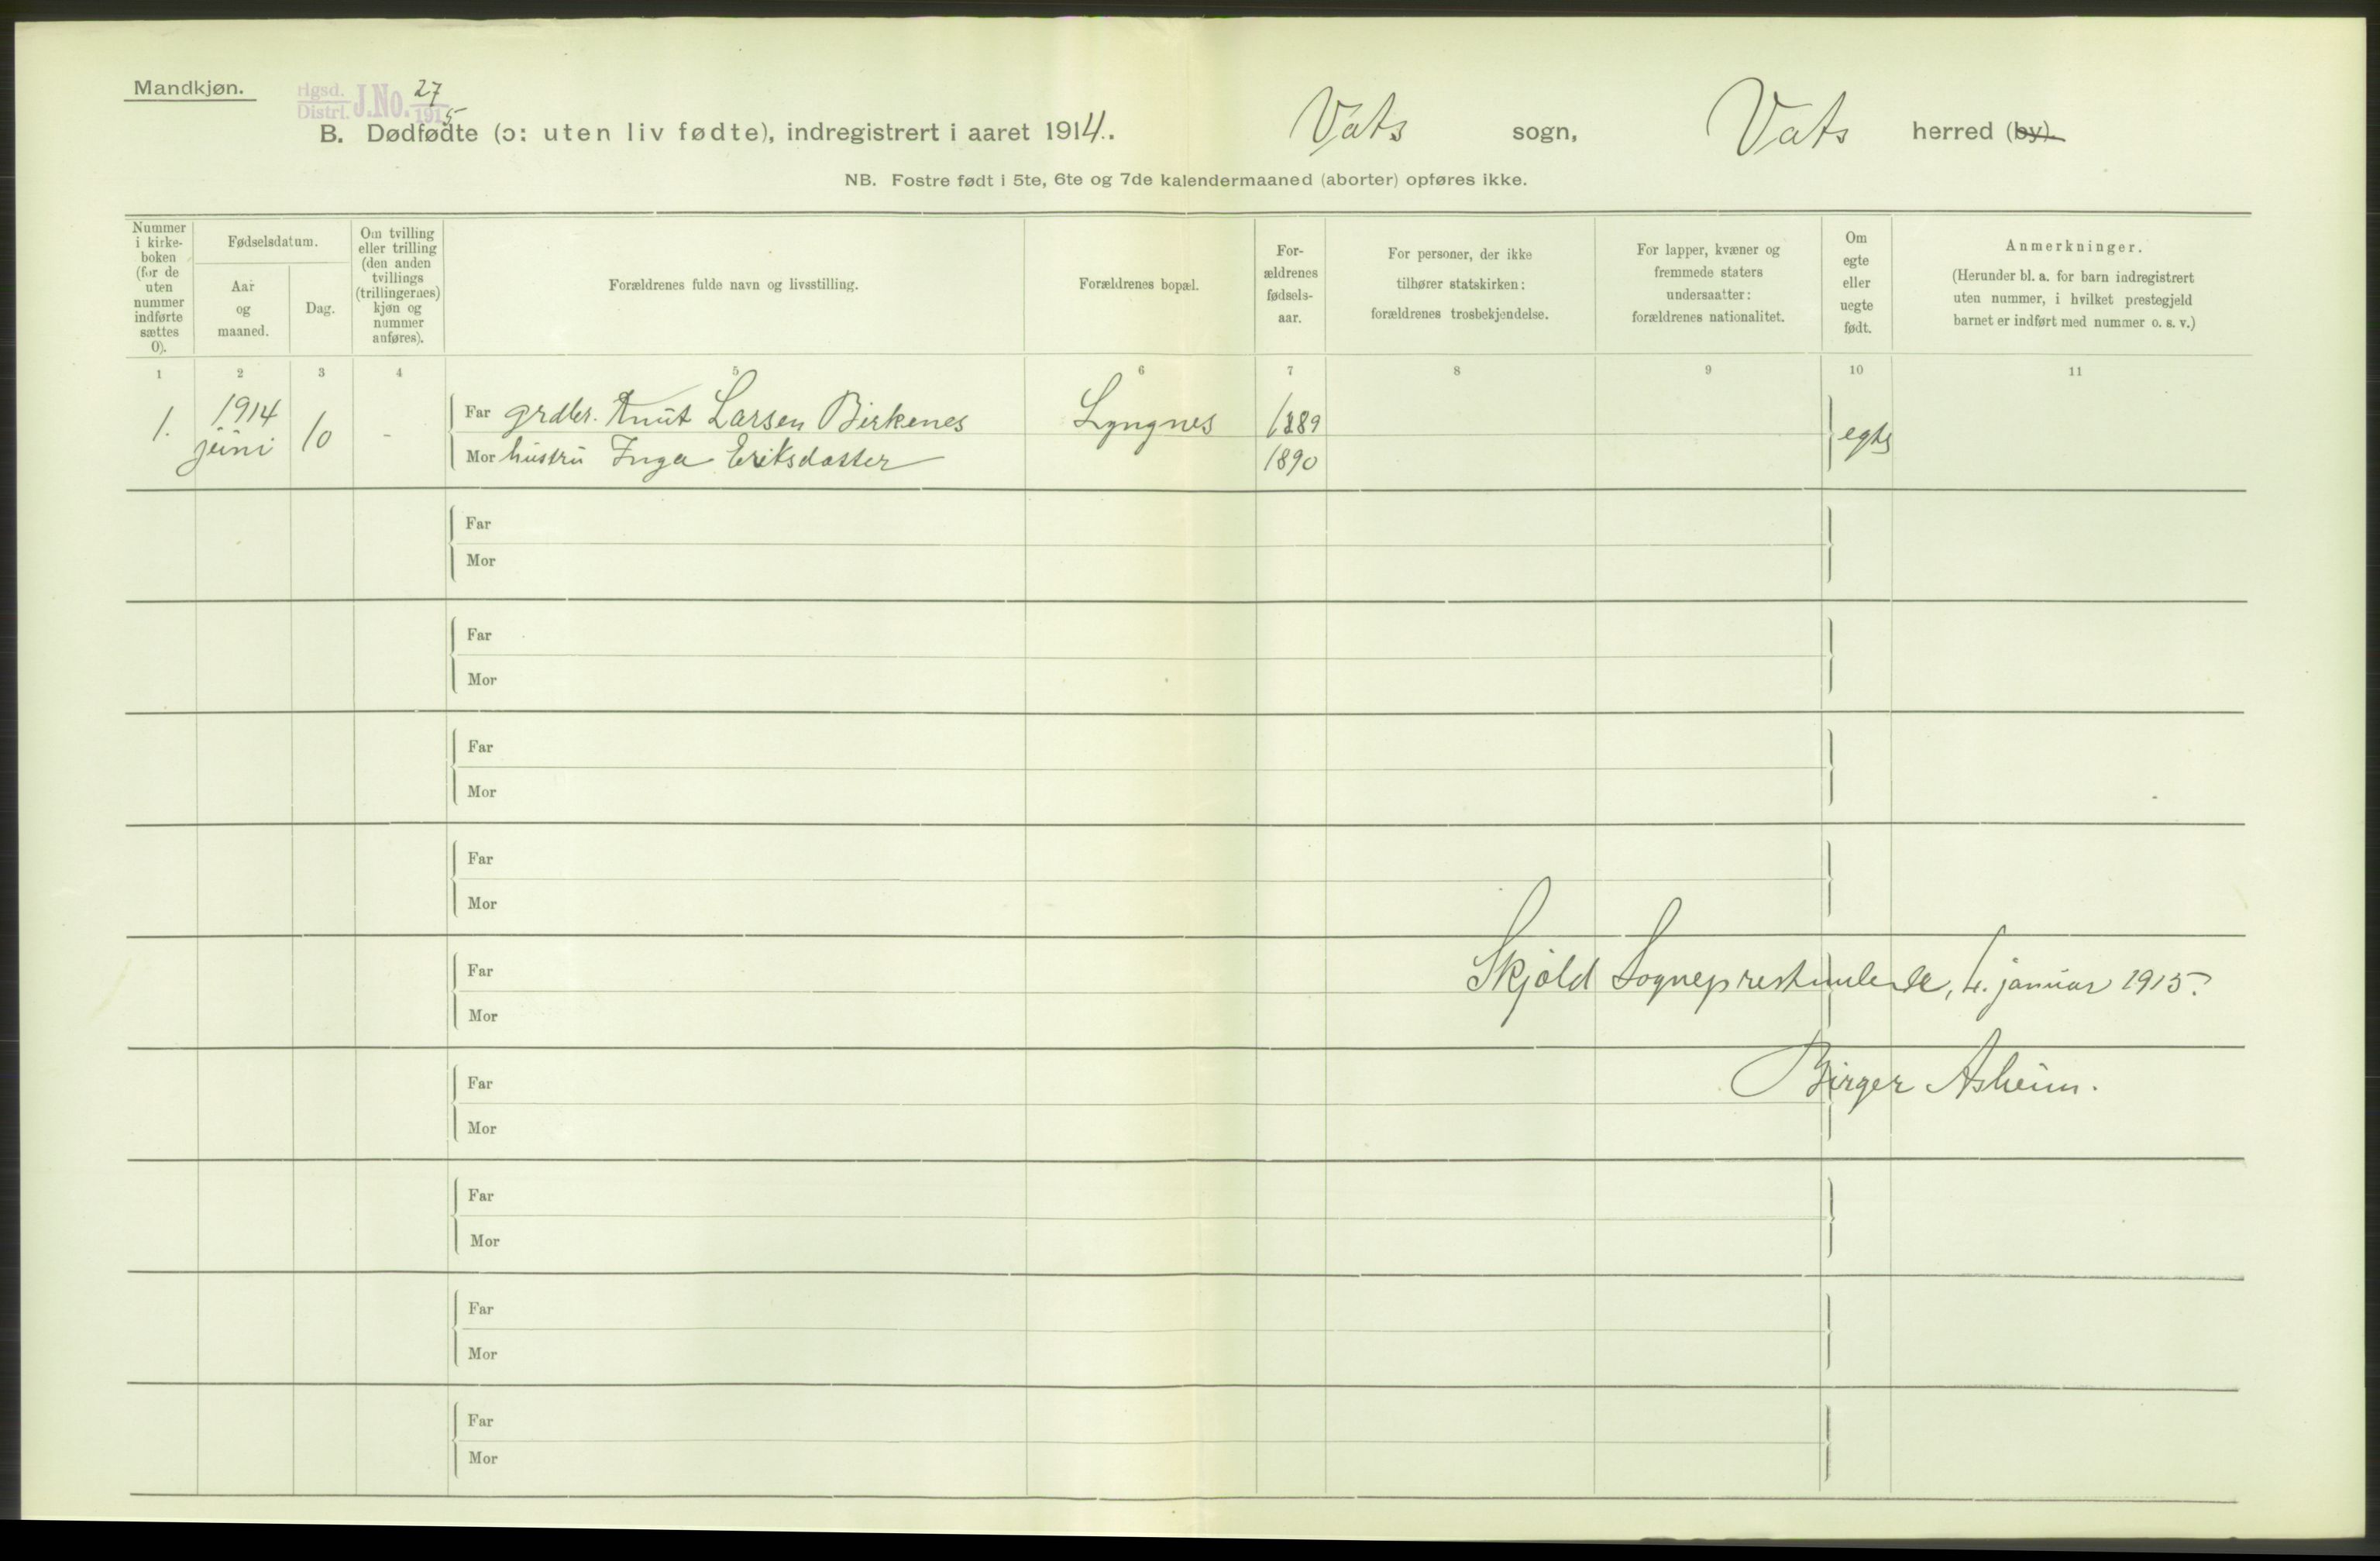 Mandkjøn.
Distri. J.No. 27
1915
B. Dødfødte (ɔ: uten liv fødte), indregistrert i aaret 1914. Vats sogn, Vats herred (by).
NB. Fostre født i 5te, 6te og 7de kalendermaaned (aborter) opføres ikke.
Nummer i kirke-boken (for de uten nummer indførte sættes 0).
Fødselsdatum.
Aar og maaned.
Dag.
Om tvilling eller trilling (den anden tvillings (trillingernes) kjøn og nummer anføres).
Forældrenes fulde navn og livsstilling.
Forældrenes bopæl.
For-ældrenes fødsels-aar.
For personer, der ikke tilhører statskirken: forældrenes trosbekjendelse.
For lapper, kvæner og fremmede staters undersaatter: forældrenes nationalitet.
Om egte eller uegte født.
Anmerkninger.
(Herunder bl. a. for barn indregistrert uten nummer, i hvilket prestegjeld barnet er indført med nummer o. s. v.)
1 2 3 4 5 6 7 8 9 10 11
1. 1914 juni 10 - Far grdbr. Knut Larsen Birkenes Lyngnes 1889 egte
Mor hustru Inga Eriksdatter 1890
Far
Mor
Far
Mor
Far
Mor
Far
Mor
Far
Skjold Sogneprestembede, 4. januar 1915.
Mor
Far
Birger Asheim.
Mor
Far
Mor
Far
Mor
Far
Mor